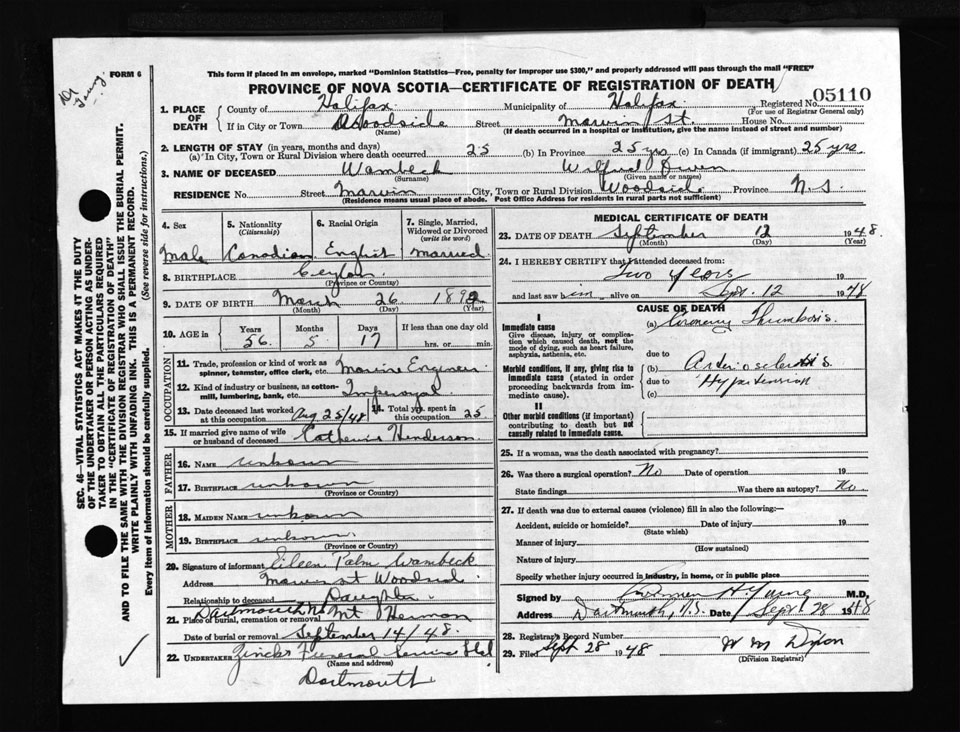 FORM 6
This form if placed in an envelope, marked "Dominion Statistics—Free, penalty for improper use $300," and properly addressed will pass through the mail "FREE"
PROVINCE OF NOVA SCOTIA—CERTIFICATE OF REGISTRATION OF DEATH
1. PLACE OF DEATH County of Halifax Municipality of Halifax Registered No. 05110
(For use of Registrar General only)
If in City or Town Woodside Street Marvin St. House No.
(Name) (If death occurred in a hospital or institution, give the name instead of street and number)
2. LENGTH OF STAY (in years, months and days)
(a) In City, Town or Rural Division where death occurred 25 (b) In Province 25 yrs (c) In Canada (if immigrant) 25 yrs.
3. NAME OF DECEASED Wambeck Wilfred Owen
(Surname) (Given name or names)
RESIDENCE No. Street Marvin City, Town or Rural Division Woodside Province N.S.
(Residence means usual place of abode. Post Office Address for residents in rural parts not sufficient)
4. Sex 5. Nationality (Citizenship) 6. Racial Origin 7. Single, Married, Widowed or Divorced (write the word)
Male Canadian English married
8. BIRTHPLACE Ceylon
(Province or Country)
9. DATE OF BIRTH March 26 189
(Month) (Day) (Year)
10. AGE in Years Months Days If less than one day
56 5 17 hrs. or min.
OCCUPATION
11. Trade, profession or kind of work as spinner, teamster, office clerk, etc. Marine Engineer
12. Kind of industry or business, as cotton-mill, lumbering, bank, etc. Imperoyal
13. Date deceased last worked at this occupation Aug 25/48 14. Total yrs. spent in this occupation 25
15. If married give name of wife or husband of deceased Catherine Henderson
FATHER
16. NAME unkown
17. BIRTHPLACE unkown
(Province or Country)
MOTHER
18. MAIDEN NAME unkown
19. BIRTHPLACE unkown
(Province or Country)
20. Signature of informant Eileen Palm Wambeck
Address Marvin st Woodside
Relationship to deceased Daughter
Dartmouth NS
21. Place of burial, cremation or removal Mt Hermon
Date of burial or removal September 14/48.
22. UNDERTAKER Zincks Funeral Service Ltd
(Name and address)
Dartmouth
MEDICAL CERTIFICATE OF DEATH
23. DATE OF DEATH September 12 1948.
(Month) (Day) (Year)
24. I HEREBY CERTIFY that I attended deceased from:
Two years 19
and last saw him alive on Sept. 12 1948
CAUSE OF DEATH
I
Immediate cause
Give disease, injury or complication which caused death, not the mode of dying, such as heart failure, asphyxia, asthenia, etc.
(a) Coronary Thrombosis.
due to
Morbid conditions, if any, giving rise to immediate cause (stated in order proceeding backwards from immediate cause).
Arteriosclerosis
due to Hypertension
(c)
II
Other morbid conditions (if important) contributing to death but not causally related to immediate cause.
25. If a woman, was the death associated with pregnancy?
26. Was there a surgical operation? No Date of operation 19
State findings Was there an autopsy? No.
27. If death was due to external causes (violence) fill in also the following:—
Accident, suicide or homicide? Date of injury 19
(State which)
Manner of injury
(How sustained)
Nature of injury
Specify whether injury occurred in industry, in home, or in public place
Signed by M.D.
Address Dartmouth, N.S. Date Sept 28 1948
28. Registrar's Record Number
29. Filed Sept 28 1948 W M Dixon
(Division Registrar)
SEC. 46—VITAL STATISTICS ACT MAKES IT THE DUTY
OF THE UNDERTAKER OR PERSON ACTING AS UNDER-
TAKER TO OBTAIN ALL THE PARTICULARS REQUIRED
IN THE "CERTIFICATE OF REGISTRATION OF DEATH"
AND TO FILE THE SAME WITH THE DIVISION REGISTRAR WHO SHALL ISSUE THE BURIAL PERMIT.
WRITE PLAINLY WITH UNFADING INK. THIS IS A PERMANENT RECORD.
Every item of information should be carefully supplied. (See reverse side for instructions.)